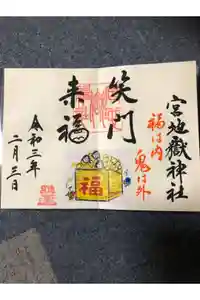 宮地嶽神社
福は内
鬼は外
笑門
来福
福
令和三年
二月三日